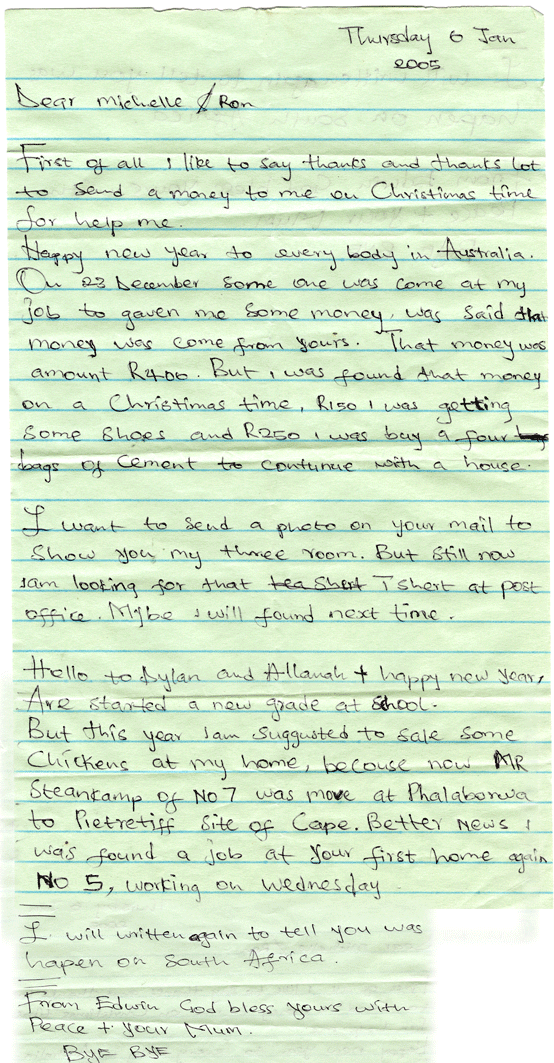 Thursday 6 Jan
2005
Dear Michelle & Ron
First of all I like to say thanks and thanks lot
to send a money to me on Christimas time
for help me.
Happy new year to every body in Australia.
On 23 December some one was come at my
job to gaven me some money, was said that
money was come from yours. That money was
amount R400. But I was found that money
on a Christimas time, R150 I was getting
some shoes and R250 I was buy a four
bags of cement to continue with a house.
I want to send a photo on your mail to
show you my three room. But still now
Iam looking for that tea shert T shert at post
office. Mybe I will found next time.
Hello to Dylan and Allanah + happy new year,
Are started a new grade at school.
But this year Iam suggusted to sale some
Chickens at my home, becouse now MR
Steankamp of No 7 was move at Phalaborwa
to Pietretiff site of Cape. Better News I
was found a job at your first home again
No 5, working on wednesday.
I will written again to tell you was
hapen on South Africa.
From Edwin God bless yours with
Peace + your Mum.
BYE BYE